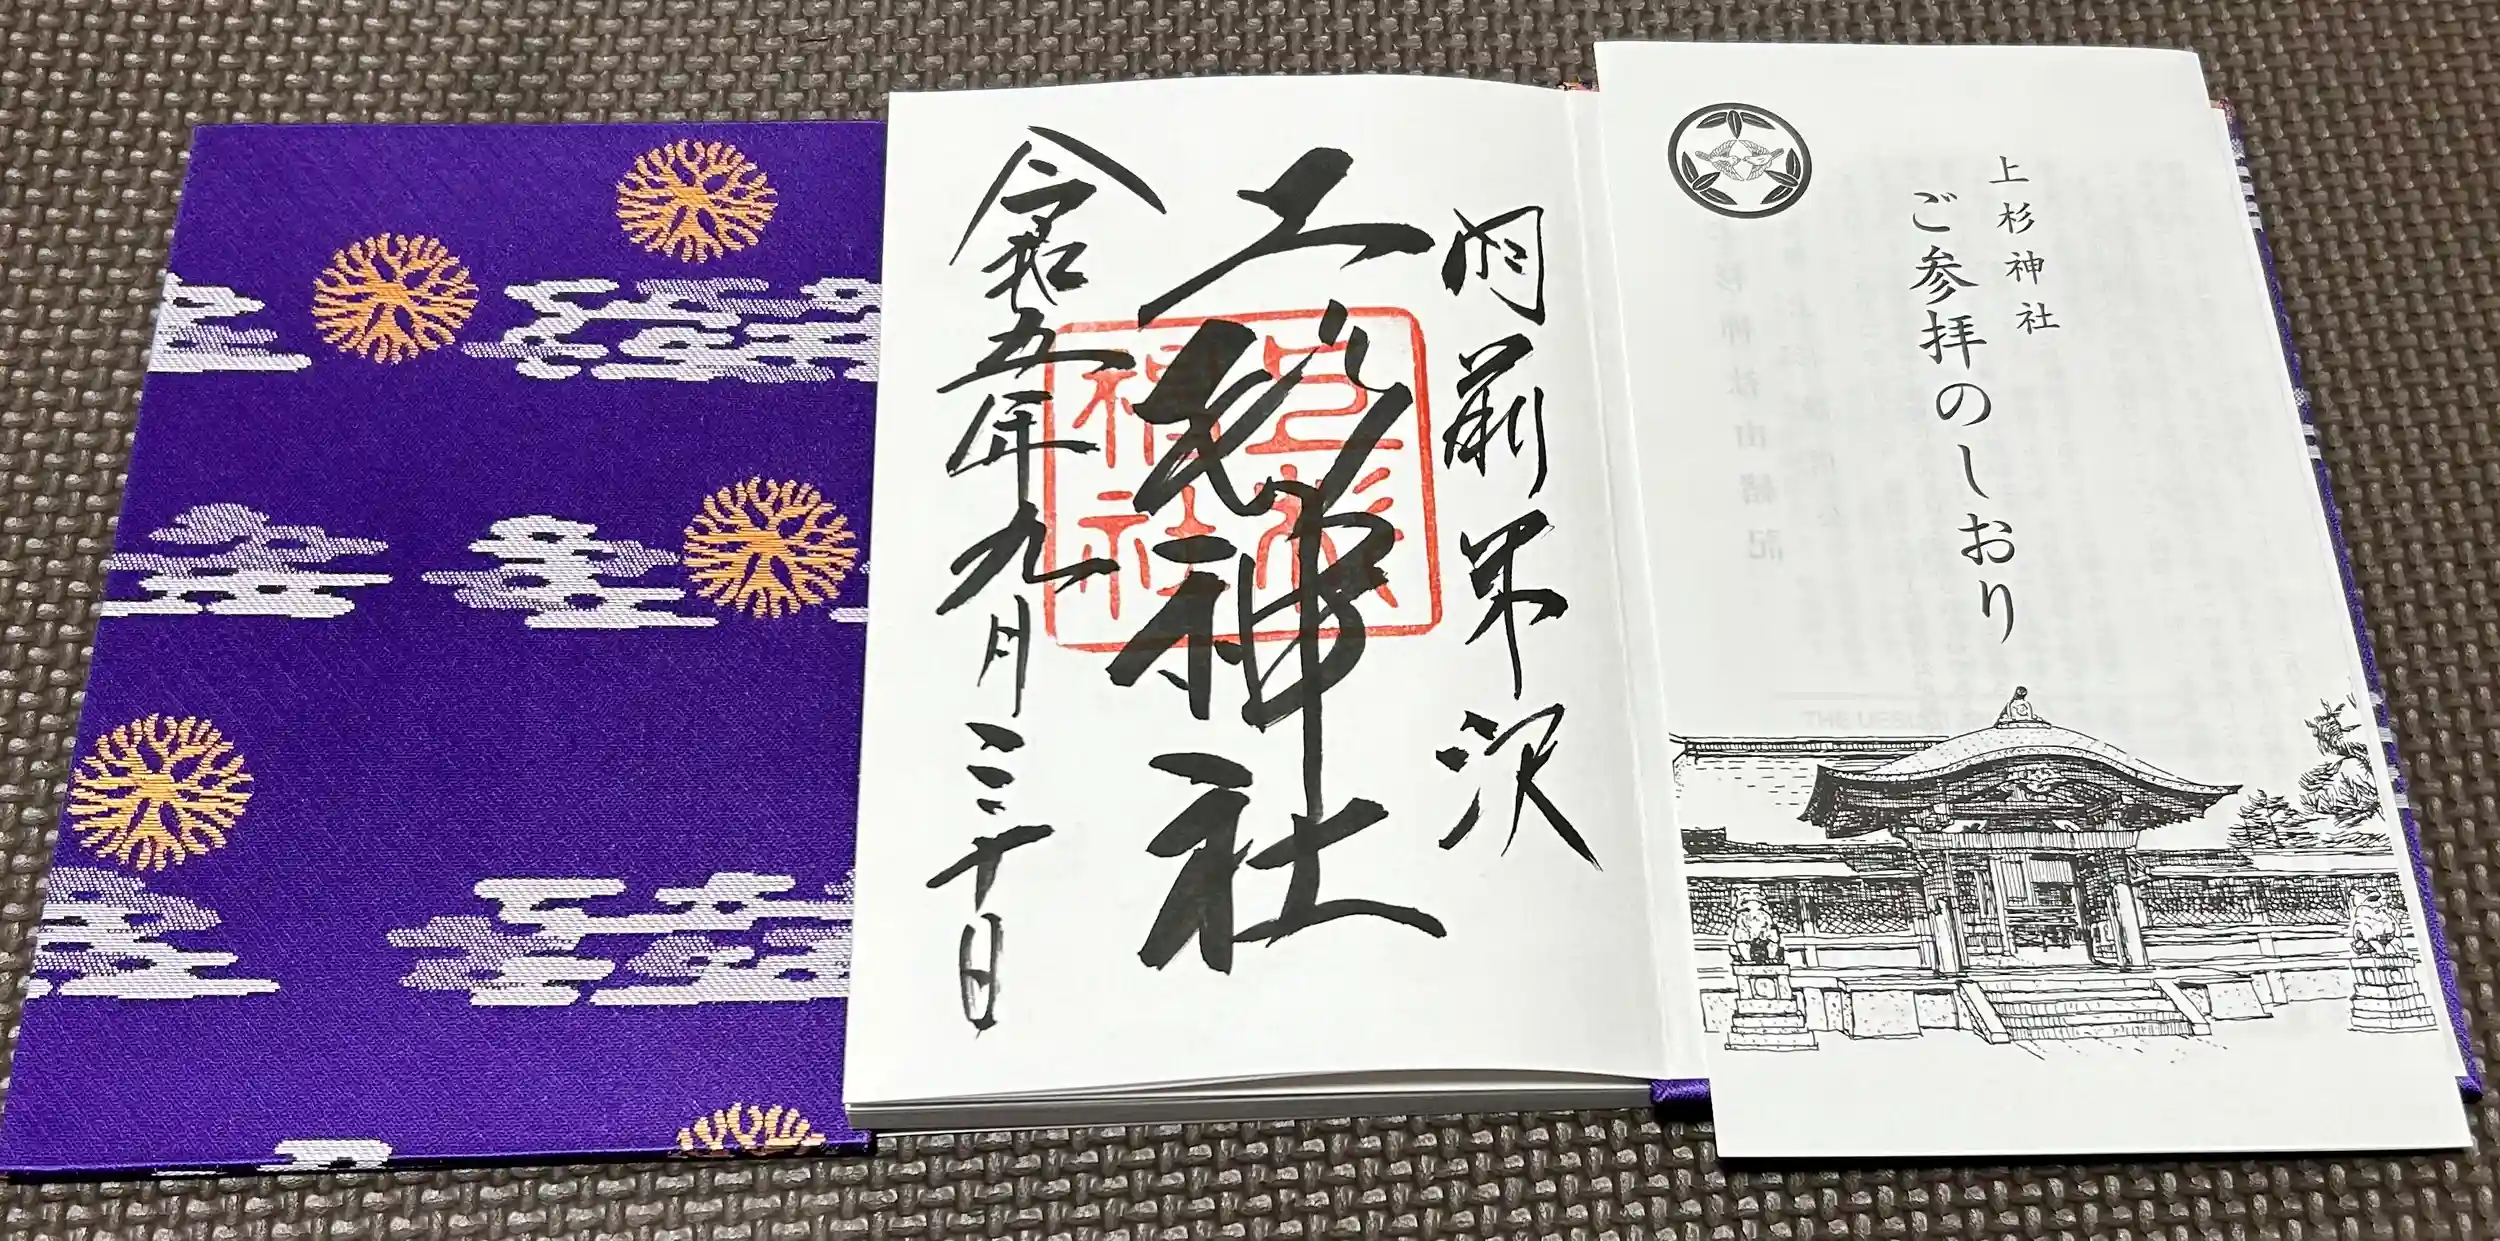 上杉神社
ご参拝のしおり
羽前米沢
上杉神社
上杉
神社
令和五年九月三十日